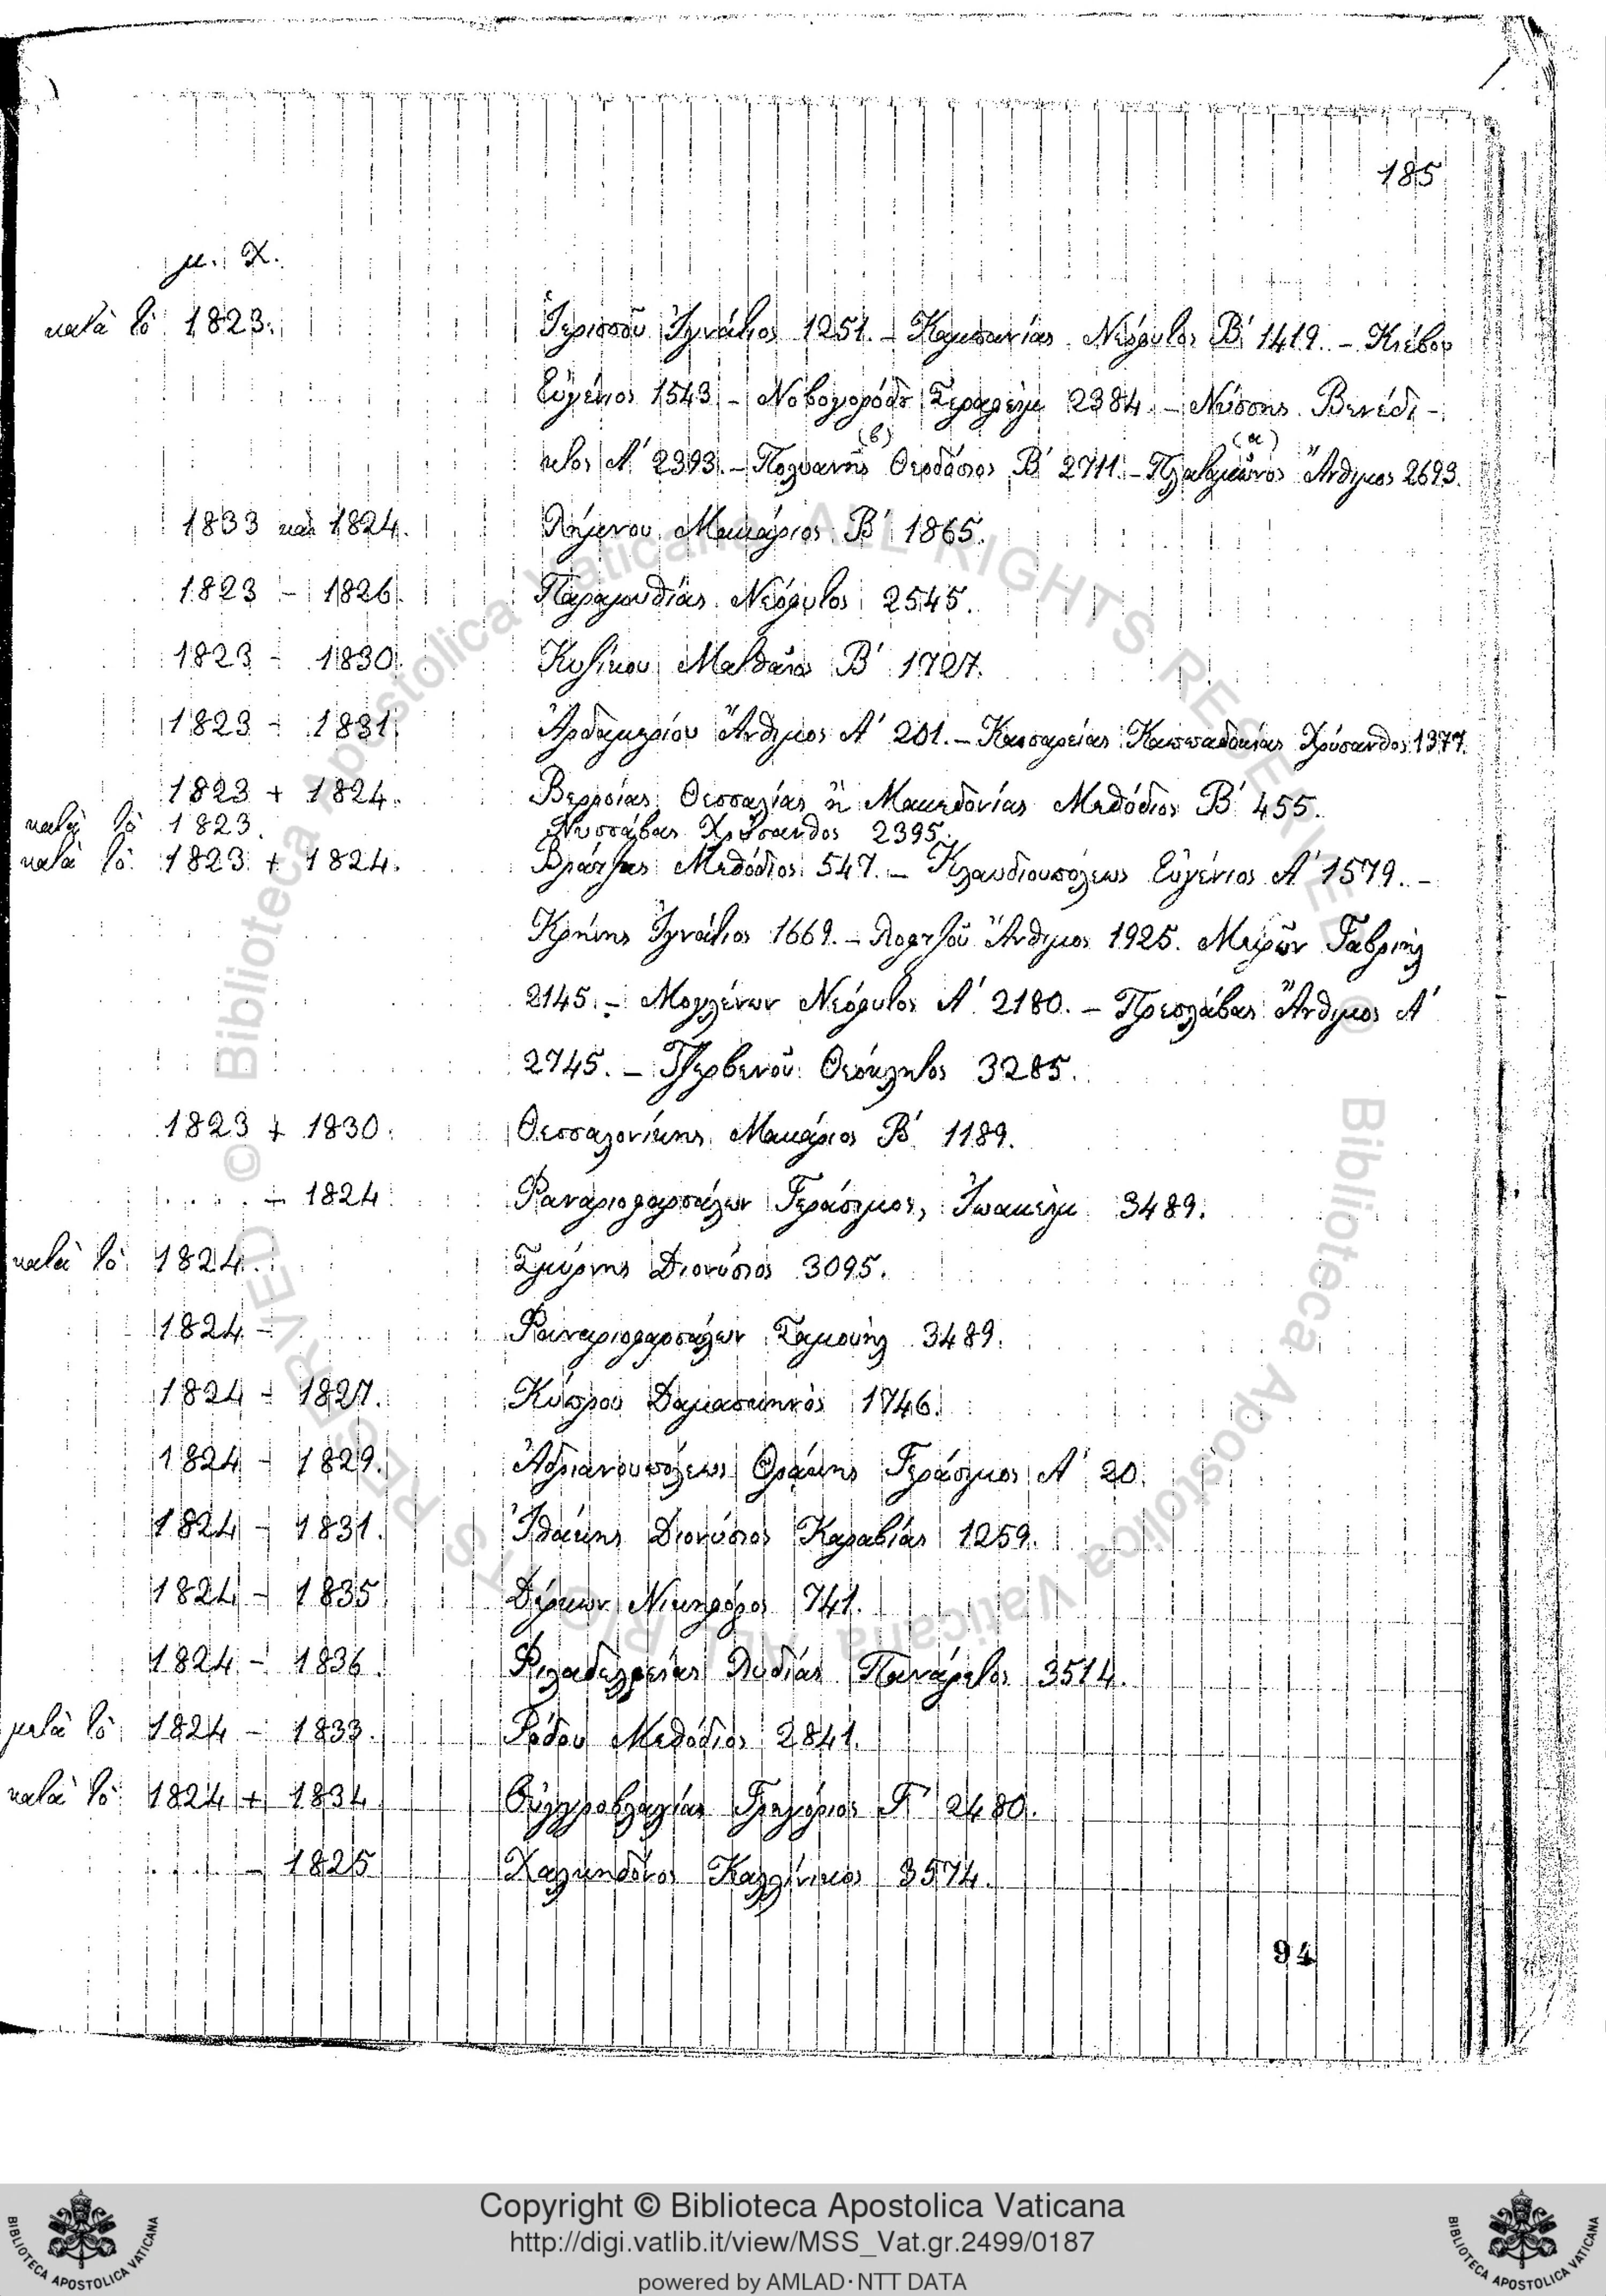 185
μ. Χ.
κατὰ τὸ 1823. Ἱερισσοῦ Ἰγνάτιος 1251. – Καμπανίας Νεόφυτος Β΄ 1419. – Κιέβου
Εὐγένιος 1543 – Νοβογορόδου Σεραφεὶμ 2384. – Νύσσης Βενέδι-
κτος Α΄ 2393. – Πολυανῆς (β) Θεοδόσιος Β΄ 2711. – Πλαταμῶνος (α) Ἄνθιμος 2693.
1833 καὶ 1824. Λήμνου Μακάριος Β΄ 1865.
1823 – 1826. Παραμυθίας Νεόφυτος 2545.
1823 – 1830. Κυζίκου Ματθαῖος Β΄ 1727.
1823 – 1831. Ἀρδαμερίου Ἄνθιμος Α΄ 201. – Καισαρείας Καππαδοκίας Χρύσανθος 1377.
1823 + 1824. Βερροίας Θεσσαλίας ἢ Μακεδονίας Μεθόδιος Β΄ 455.
κατὰ τὸ 1823. Νυσσάβας Χρύσανθος 2395.
κατὰ τὸ 1823 + 1824. Βράτζης Μεθόδιος 547. – Κλαυδιουπόλεως Εὐγένιος Α΄ 1579. –
Κρήνης Ἰγνάτιος 1669. – Λοφτζοῦ Ἄνθιμος 1925. Μετρῶν Γαβριὴλ
2145. – Μογλένων Νεόφυτος Α΄ 2180. – Πρεσλάβας Ἄνθιμος Α΄
2745. – Τζερβενοῦ Θεόκλητος 3285.
1823 + 1830. Θεσσαλονίκης Μακάριος Β΄ 1189.
. . . . – 1824. Φαναριοφαρσάλων Γεράσιμος, Ἰωακεὶμ 3489.
κατὰ τὸ 1824. Σμύρνης Διονύσιος 3095.
1824 – Φαναριοφαρσάλων Σαμουὴλ 3489.
1824 – 1827. Κύπρου Δαμασκηνὸς 1746.
1824 – 1829. Ἀδριανουπόλεως Θράκης Γεράσιμος Α΄ 20.
1824 – 1831. Ἰθάκης Διονύσιος Καραβίας 1259.
1824 – 1835 Δέρκων Νικηφόρος 741.
1824 – 1836. Φιλαδελφείας Λυδίας Πανάρετος 3514.
μετὰ τὸ 1824 – 1833. Ρόδου Μεθόδιος 2841.
κατὰ τὸ 1824 + 1834 Οὐγγροβλαχίας Γρηγόριος Γ΄ 2480.
. . . . – 1825 Χαλκηδόνος Καλλίνικος 3574.
94
Copyright © Biblioteca Apostolica Vaticana
http://digi.vatlib.it/view/MSS_Vat.gr.2499/0187
powered by AMLAD·NTT DATA